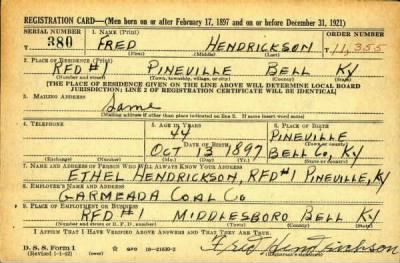 REGISTRATION CARD—(Men born on or after February 17, 1897 and on or before December 31, 1921)
SERIAL NUMBER 1. NAME (Print) ORDER NUMBER
380 FRED HENDRICKSON 11,355
(First) (Middle) (Last)
2. PLACE OF RESIDENCE (Print)
RFD #1 PINEVILLE BELL KY
(Number and street) (Town, township, village, or city) (County) (State)
[THE PLACE OF RESIDENCE GIVEN ON THE LINE ABOVE WILL DETERMINE LOCAL BOARD
JURISDICTION; LINE 2 OF REGISTRATION CERTIFICATE WILL BE IDENTICAL]
3. MAILING ADDRESS
Same
[Mailing address if other than place indicated on line 2. If same insert word same]
4. TELEPHONE 5. AGE IN YEARS 6. PLACE OF BIRTH
44 PINEVILLE
DATE OF BIRTH (Town or county)
OCT 13 1897 BELL CO, KY
(Exchange) (Number) (Mo.) (Day) (Yr.) (State or country)
7. NAME AND ADDRESS OF PERSON WHO WILL ALWAYS KNOW YOUR ADDRESS
ETHEL HENDRICKSON, RFD #1 PINEVILLE, KY
8. EMPLOYER'S NAME AND ADDRESS
GARMEADA COAL CO
9. PLACE OF EMPLOYMENT OR BUSINESS
RFD #1 MIDDLESBORO BELL KY
(Number and street or R. F. D. number) (Town) (County) (State)
I AFFIRM THAT I HAVE VERIFIED ABOVE ANSWERS AND THAT THEY ARE TRUE.
D. S. S. Form 1 GPO 16—21630-2 Fred Hendrickson
(Revised 1-1-42) (over) (Registrant's signature)